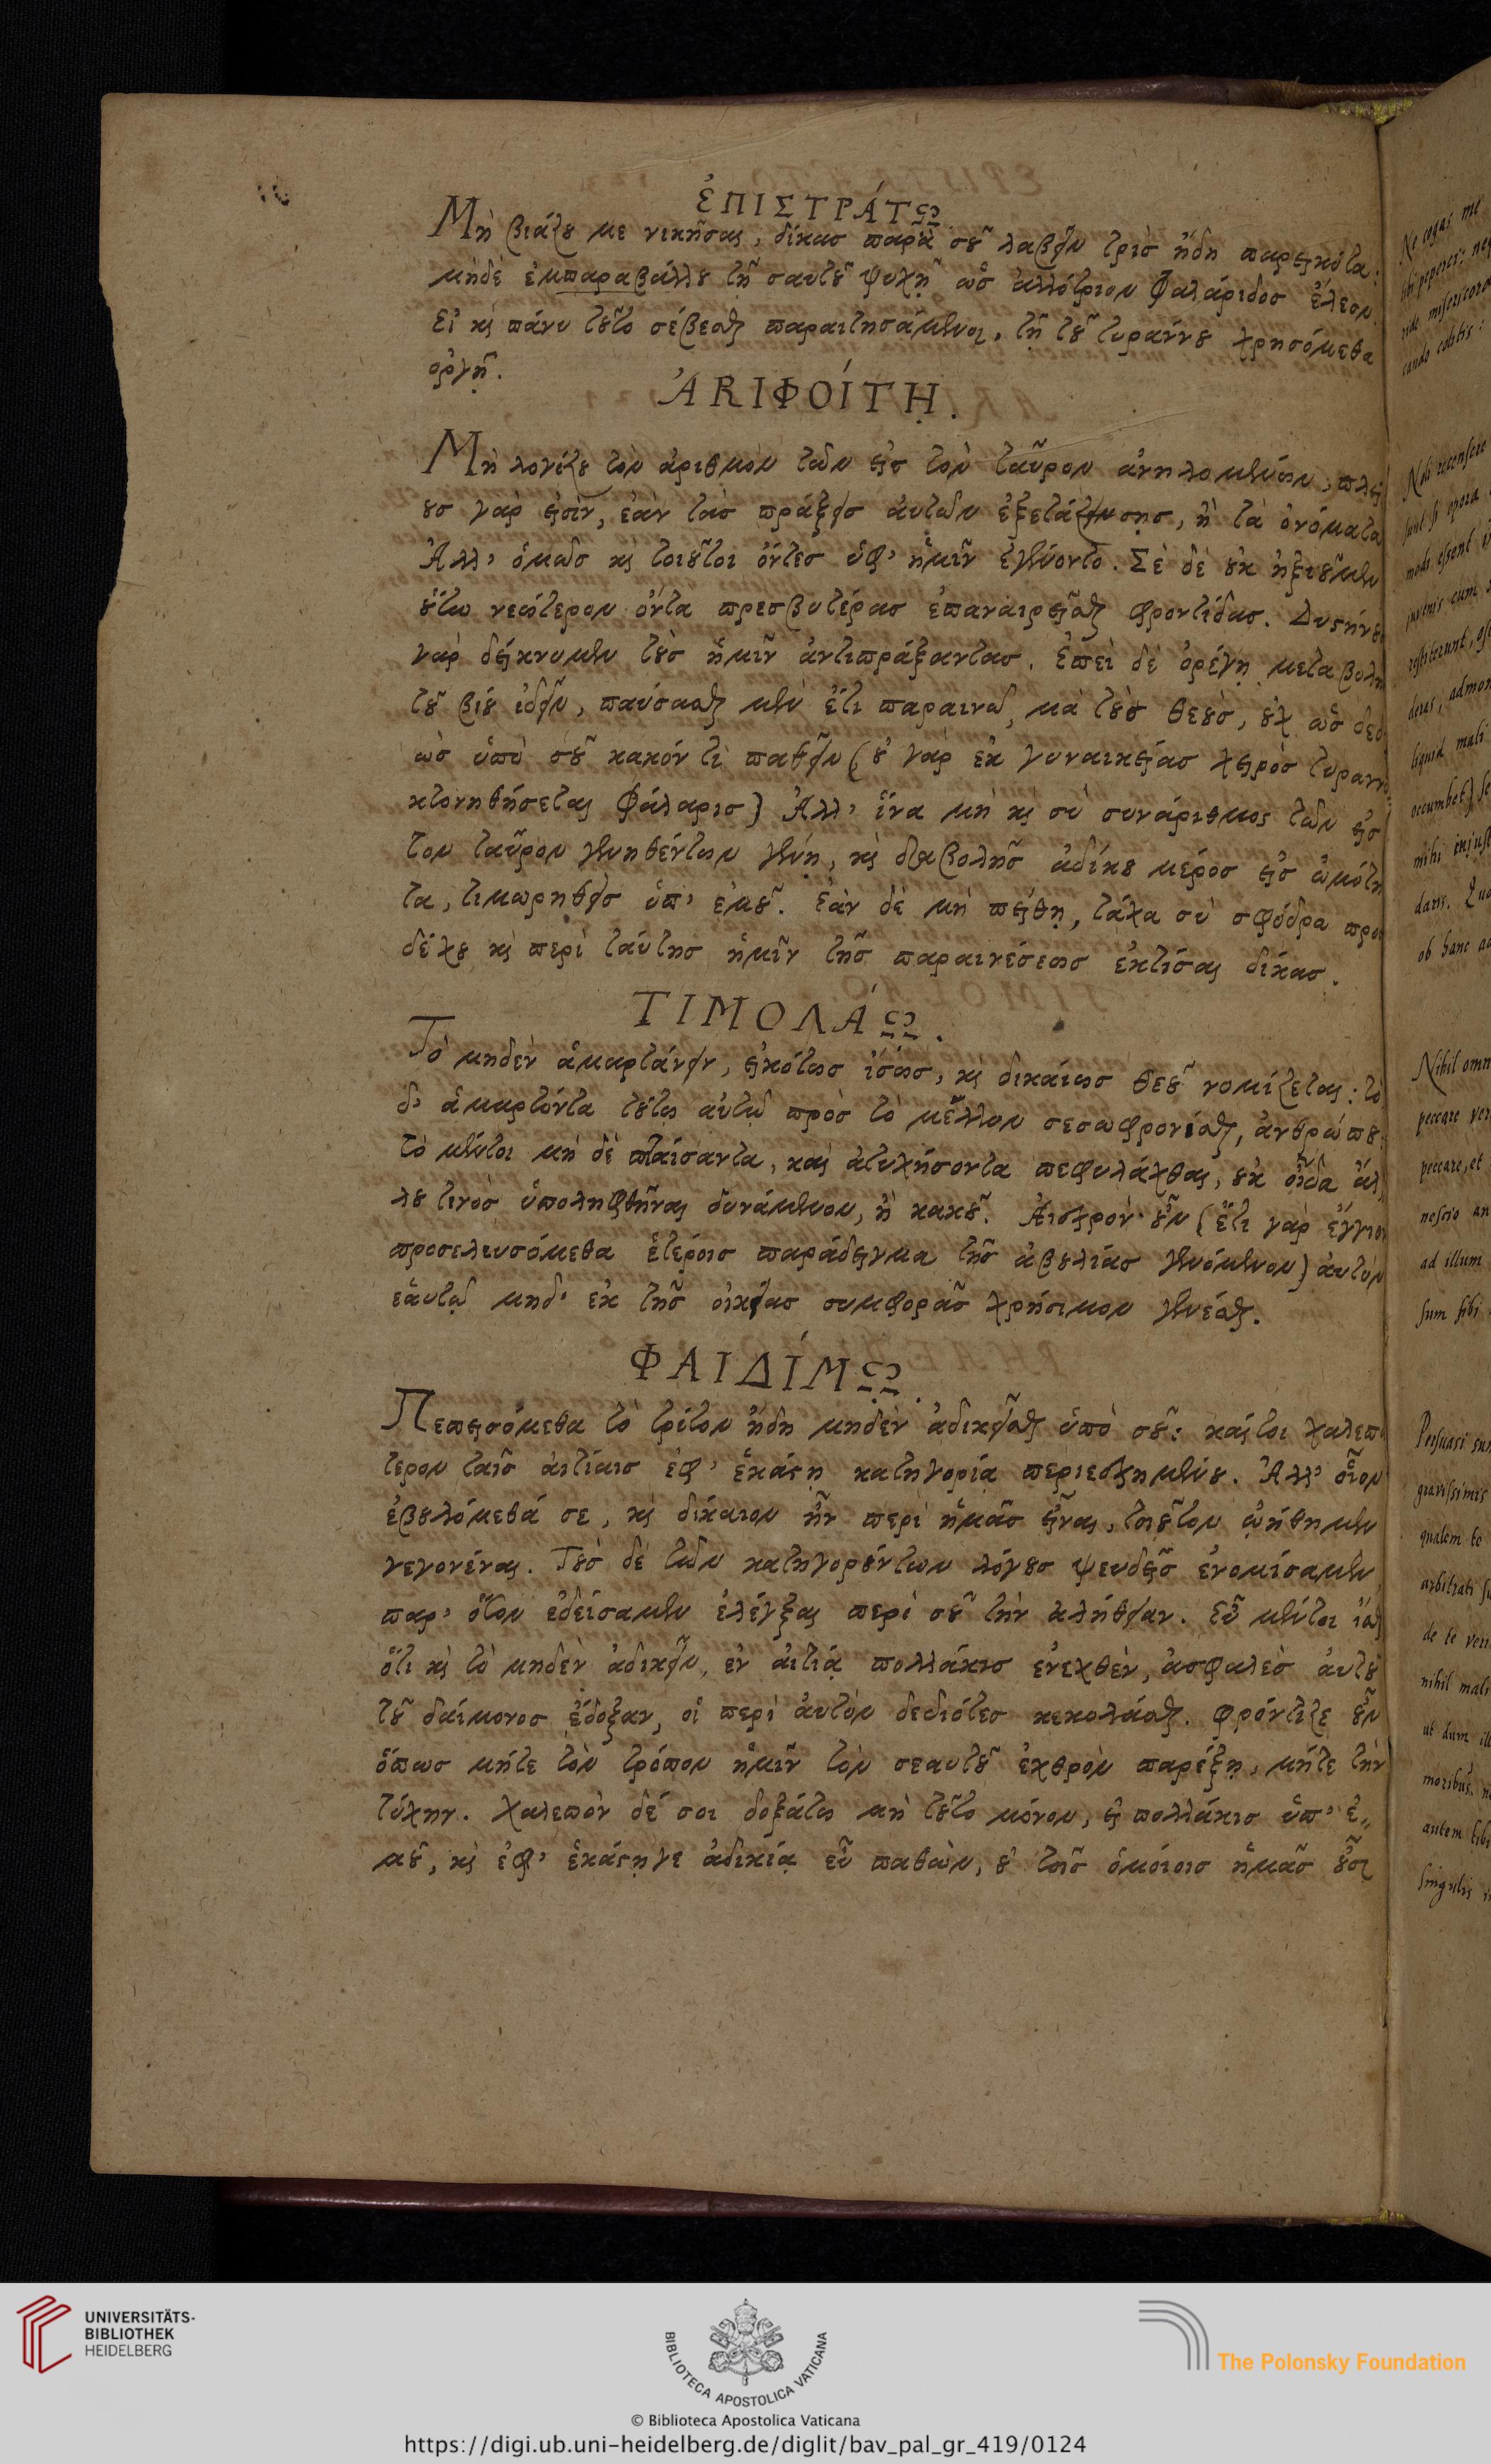 ἘΠΙΣΤΡΆΤΩ
Μὴ βιάζου με νικῆσαι, δίκασ παρὰ σοῦ λαβεῖν τρὶσ ἤδη παρεικότα.
μηδὲ ἐμπαραβάλλου τῇ σαυτοῦ ψυχῇ ὡσ ἀλλότριον Φαλάριδοσ ἔλεον
Εἰ καὶ πάνυ τοῦτο σέβεσθαι παραιτησάμενοι, τῇ τοῦ τυράννου χρησόμεθα
ὀργῇ.
ἈRΙΦΟΊΤῌ.
Μὴ λογίζου τὸν ἀριθμὸν τῶν εἰσ τὸν ταῦρον ἀνηλομένων, πλεί
ουσ γὰρ εἰσὶν, ἐὰν τὰσ πράξεισ ἀυτῶν ἐξετάζειν σῃσ, ἢ τὰ ὀνόματα
Ἀλλ' ὅμωσ καὶ τοιοῦτοι ὄντεσ ὑφ' ἡμῖν ἐγένοντο. Σὲ δὲ οὐκ ἠξιοῦμεν
οὕτω νεώτερον ὄντα πρεσβυτέρασ ἐπαναιρεῖσθαι φροντίδασ. Δυστήνου
γὰρ δείκνυμεν τοὺσ ἡμῖν ἀντιπράξαντασ. Ἐπεὶ δὲ ὀρέγῃ μεταβολὴν
τοῦ βίου ἰδεῖν, παύσασθαι μὲν ἔτι παραινῶ, μὰ τοὺσ θεοὺσ, οὐχ ὡσ δεδ
ὡσ ὑπὸ σοῦ κακόν τι παθεῖν (οὐ γὰρ ἐκ γυναικείασ χειρὸσ τυρανν
κτονηθήσεται Φάλαρισ) Ἀλλ' ἵνα μὴ καὶ σὺ συνάριθμος τῶν εἰσ
τὸν ταῦρον γενηθέντων γένῃ, καὶ διαβολῆσ ἀδίκου μέροσ εἰσ ὠμότη
τα, τιμωρηθεὶσ ὑπ' ἐμοῦ. ἐὰν δὲ μὴ πείθῃ, τάχα σὺ σφόδρα προσ
δέχου καὶ περὶ ταύτησ ἡμῖν τῆσ παραινέσεωσ ἐκτίσαι δίκασ.
ΤΙΜΟΛΆΩ.
Τὸ μηδὲν ἁμαρτάνειν, εἰκότωσ ἴσωσ, καὶ δικαίωσ θεοῦ νομίζεται: τὸ
δ' ἁμαρτόντα τούτῳ αὐτῷ πρὸσ τὸ μέλλον σεσωφρονίσθαι, ἀνθρώπου.
τὸ μέντοι μὴ δὲ πταίσαντα, καὶ ἀτυχήσοντα πεφυλάχθαι, οὐκ οἶδα ἄλ
λου τινὸσ ὑποληφθῆναι δυνάμενον, ἢ κακοῦ. Ἀισχρὸν οὖν (ἔτι γὰρ ἔγγιον
προσελευσόμεθα ἑτέροισ παράδειγμα τῆσ ἀβουλίασ γενόμενον) ἀυτὸν
ἑαυτῷ μηδ' ἐκ τῆσ οἰκείασ συμφορᾶσ χρήσιμον γενέσθαι.
ΦΑΙΔΊΜΩ.
Πεπεισόμεθα τὸ τρίτον ἤδη μηδὲν ἀδικεῖσθαι ὑπὸ σοῦ: καίτοι χαλεπω
τερον ταῖσ ἀιτίαισ ἐφ' ἑκάστῃ κατηγορίᾳ περιεσχημένου. Ἀλλ' οἷον
ἐβουλόμεθά σε, καὶ δίκαιον ἦν περὶ ἡμᾶσ εἶναι, τοιοῦτον ᾠήθημεν
γεγονέναι. Τοὺσ δὲ τῶν κατηγορούντων λόγουσ ψευδεῖσ ἐνομίσαμεν,
παρ' ὅτον ἐδείσαμεν ἐλέγξαι περὶ σοῦ τὴν ἀλήθειαν. Εὖ μέντοι ἴσθι
ὅτι καὶ τὸ μηδὲν ἀδικεῖν, ἐν ἀιτίᾳ πολλάκισ ἐνεχθὲν, ἀσφαλὲσ ἀυτοῦ
τοῦ δαίμονοσ ἔδοξαν, οἱ περὶ ἀυτὸν δεδιότεσ κεκολάσθαι. φρόντιζε οὖν
ὅπωσ μήτε τὸν τρόπον ἡμῖν τὸν σεαυτοῦ ἐχθρὸν παρέξῃ, μήτε τὴν
τύχην. χαλεπὸν δέ σοι δοξάτω μὴ τοῦτο μόνον, εἰ πολλάκισ ὑπ' ἐ„
μοῦ, καὶ ἐφ' ἑκάστῃ γε ἀδικίᾳ εὖ παθὼν, οὐ τοῖσ ὁμοίοισ ἡμᾶσ
Ne cogas me
ride misericord
cando editis:
Noli recensere
sunt si opera
modi essent
juvenis cum
restiterunt, os
deras, admon
liquid mali
occumbet) se
mihi injust
daris. Qua
ob hanc ad
Nihil omn
peccare ver
peccare, et
nescio an
ad illum
sum sibi
Persuasi sum
gravissimis
qualem te
arbitrati su
de te veri
nihil mali
ut dum ill
moribus
autem tibi
singulis
UNIVERSITÄTS-
BIBLIOTHEK
HEIDELBERG
BIBLIOTECA APOSTOLICA VATICANA
The Polonsky Foundation
© Biblioteca Apostolica Vaticana
https://digi.ub.uni-heidelberg.de/diglit/bav_pal_gr_419/0124